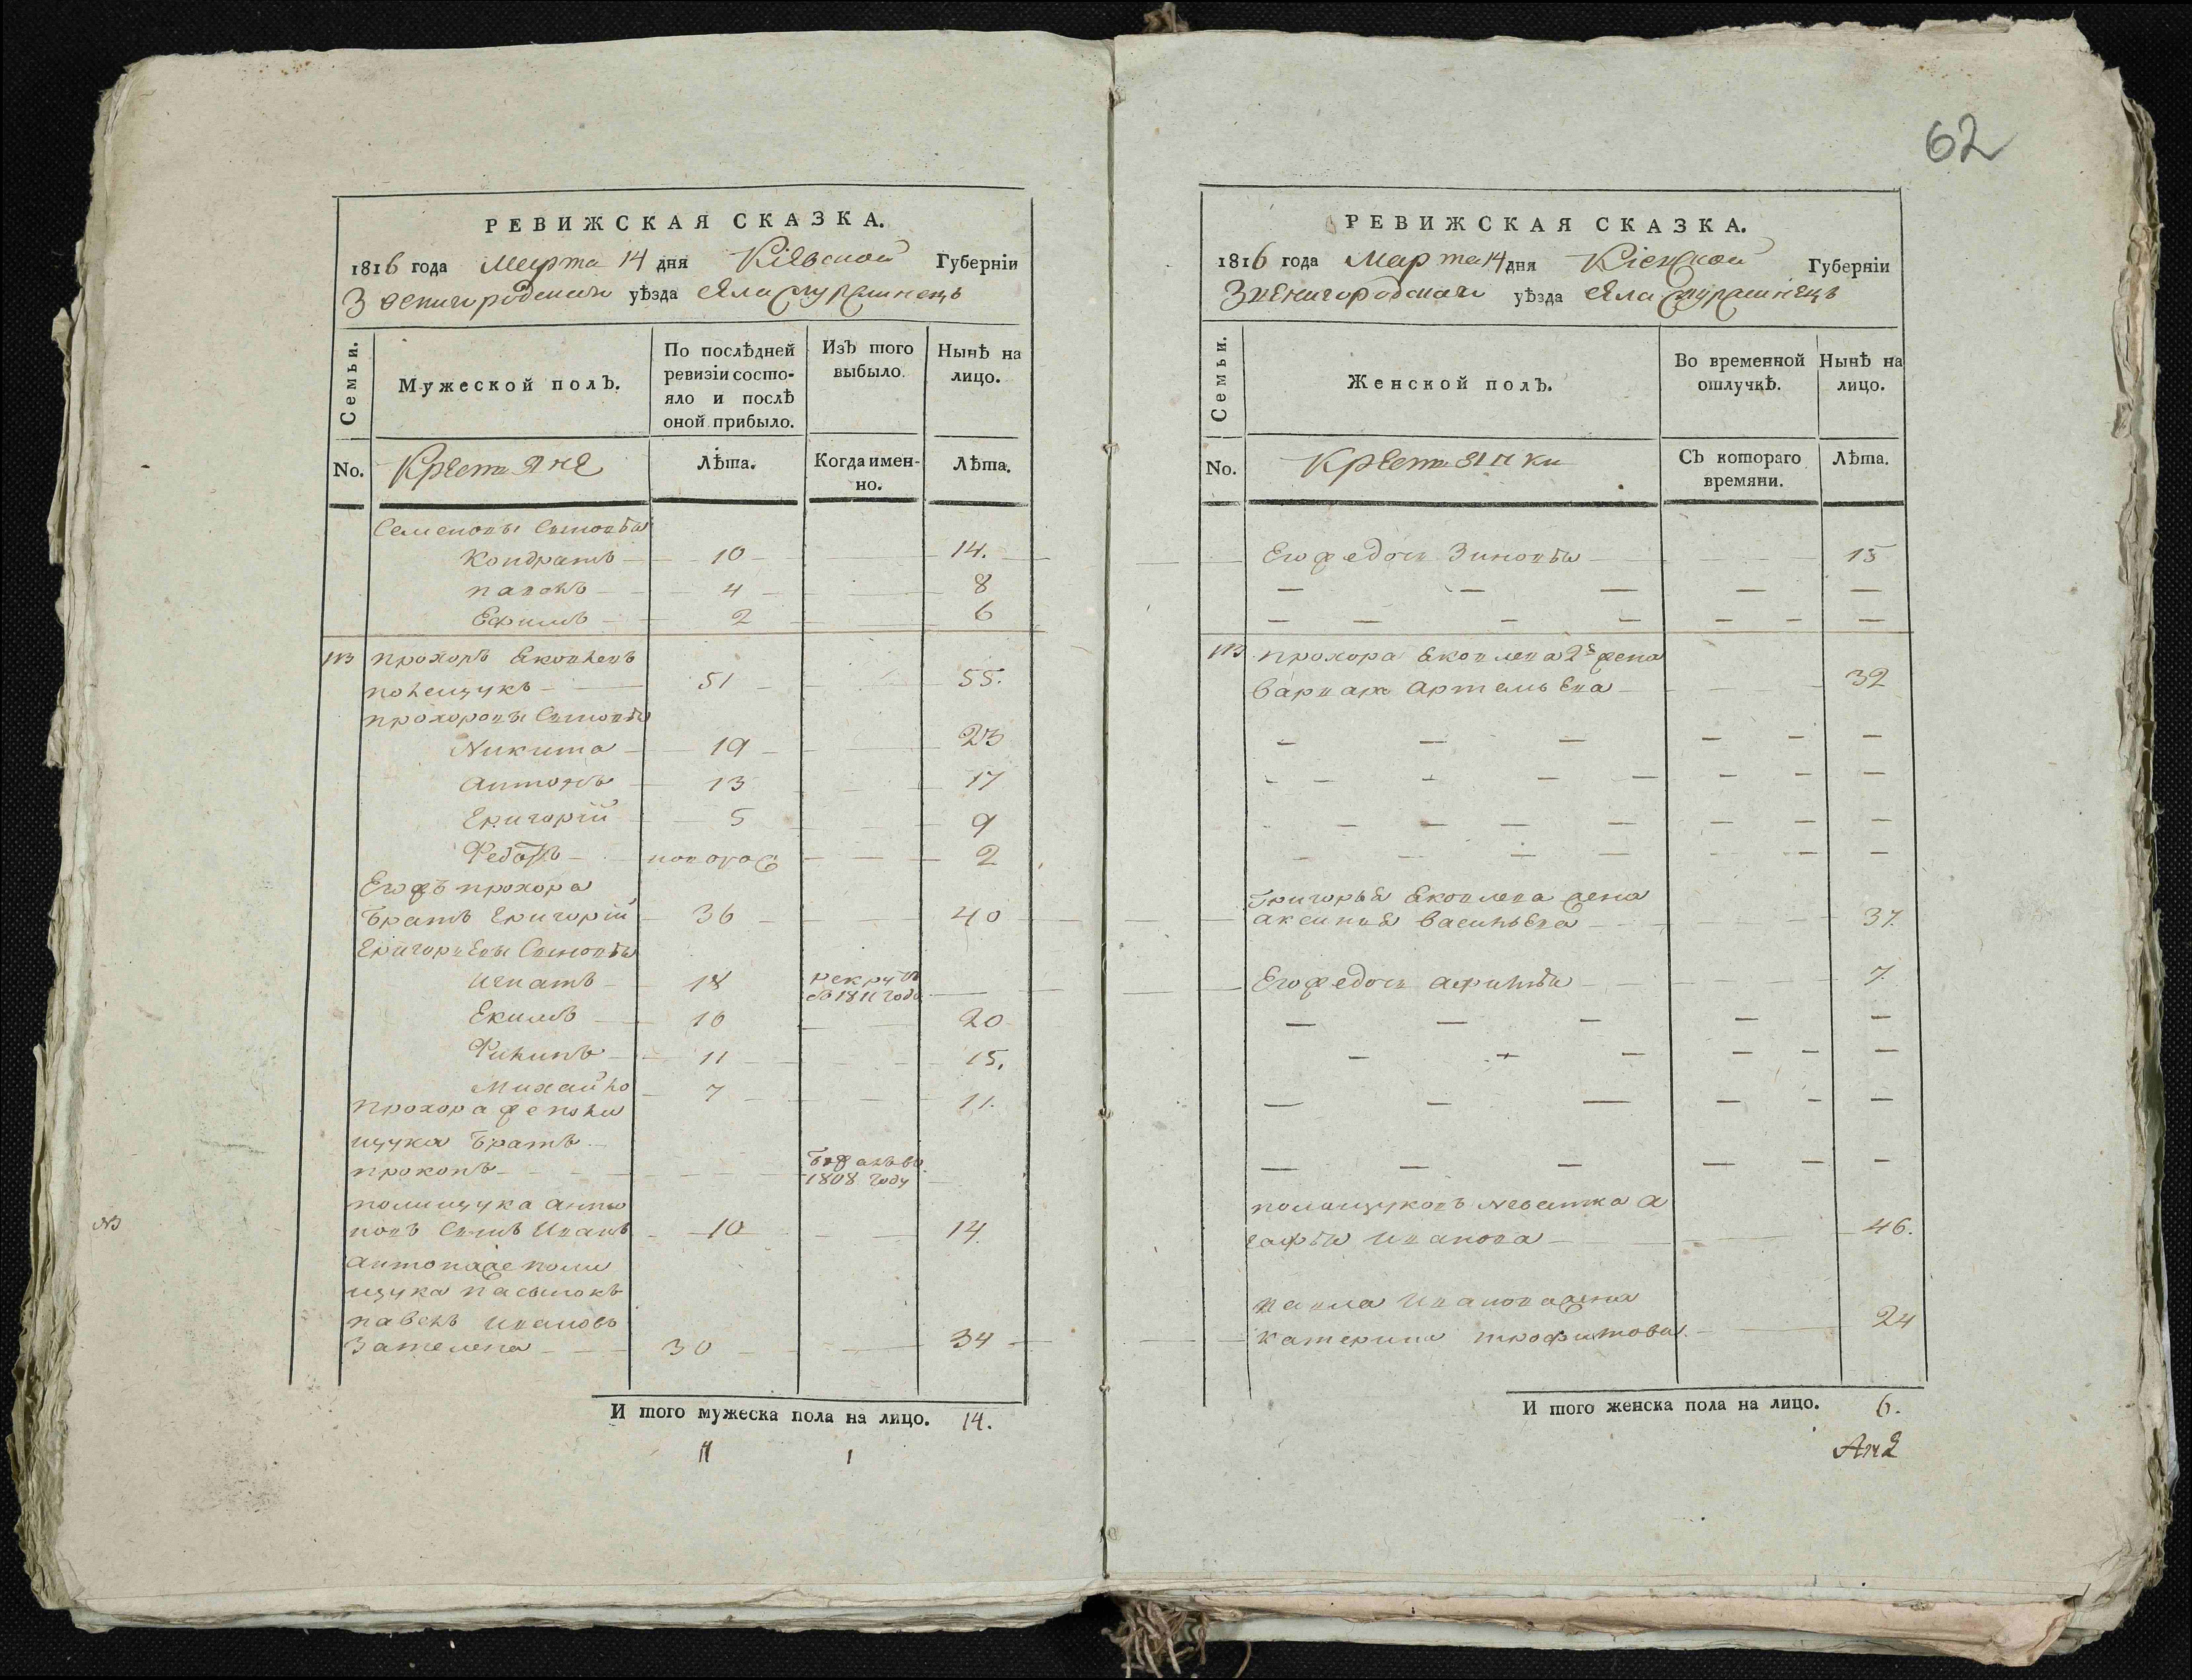 62
РЕВИЖСКАЯ СКАЗКА.
1816 года Марта 14 дня Кіевской Губерніи
Звенигородскаго уѣзда Села
Семьи.
Мужеской полъ.
По послѣдней ревизіи состо-
яло и послѣ
оной прибыло.
Изъ того
выбыло.
Нынѣ на
лицо.
No. Крестьяне
Лѣта.
Когда имен-
но.
Лѣта.
Семеновы Сыновья
Кондратъ 10 14.
Павелъ 4 8
Ефимъ 2 6
113 Прохоръ Яковлевъ
Полещукъ 51 55.
Прохоровы Сыновья
Никита 19 23
Антонъ 13 17
Григорій 5 9
Федотъ 2
Его жъ Прохора
Братъ Григорій 36 40
Григорьевы Сыновья
Игнатъ 18 Рекрутъ
съ 1811 года
Екимъ 16 20
Филипъ 11 15.
Михайло 7 11.
Прохора же Поли
щука Братъ
Прокопъ Бежалъ въ
1808 году
Полищука Анто
новъ Сынъ Иванъ 10 14
Антона же Поли
щука Пасынокъ
Павелъ Ивановъ
30 34
И того мужеска пола на лицо. 14.
РЕВИЖСКАЯ СКАЗКА.
1816 года Марта 14 дня Кіевской Губерніи
Звенигородскаго уѣзда Села
Семьи.
Женской полъ.
Во временной
отлучкѣ.
Нынѣ на
лицо.
No. Крестьянки
Съ котораго
времяни.
Лѣта.
Его же дочь Зиновья 15
113 Прохора Яковлева 2я жена
Варвара Артемьева 32
Григорья Яковлева жена
Аксинья Васильева 37.
Его же дочь 7
Полищуковъ Невестка А
гафья Иванова 46.
Павла Иванова жена
Катерина Трофимова 24
И того женска пола на лицо. 6.